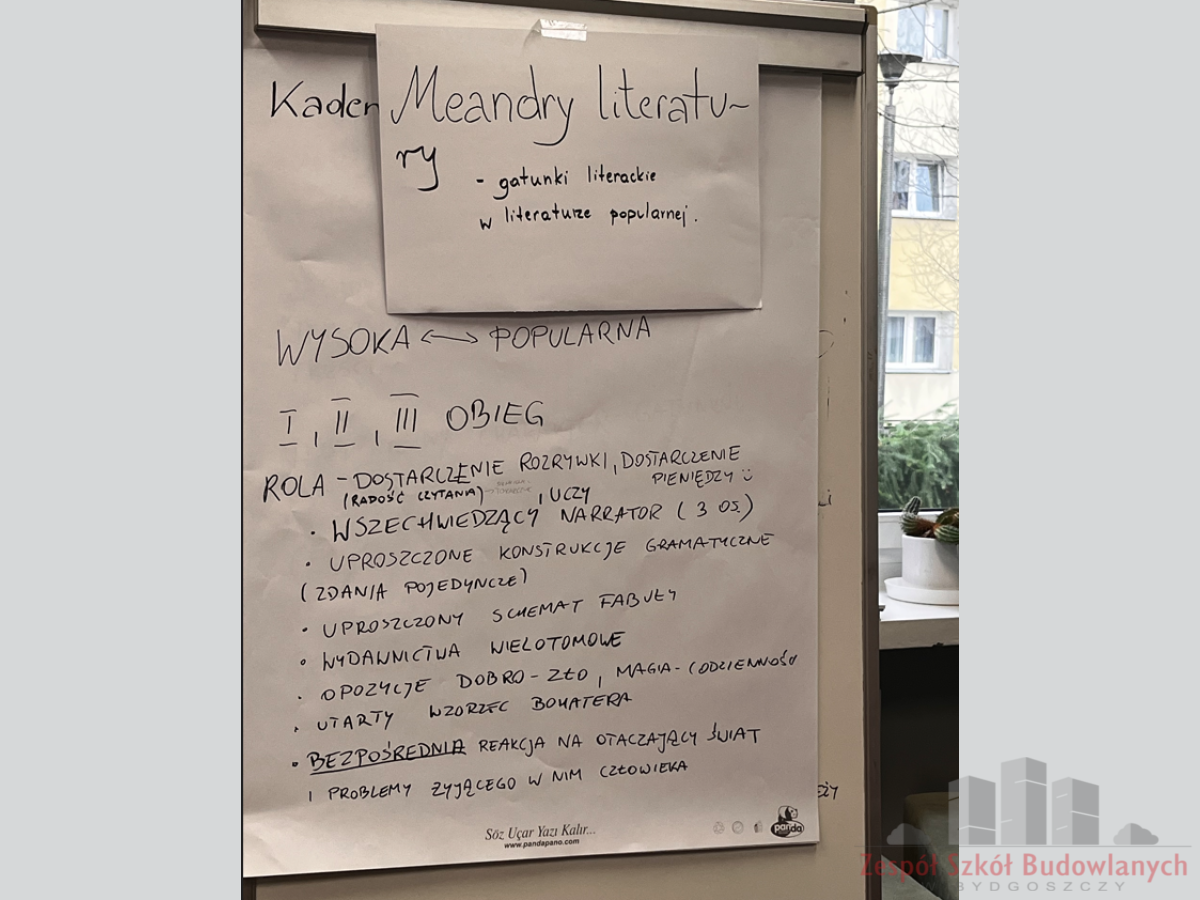 Kader
Meandry literatu~
ry
- gatunki literackie
w literaturze popularnej.
WYSOKA <-> POPULARNA
I, II, III OBIEG
ROLA - DOSTARCZENIE ROZRYWKI, DOSTARCZENIE
(RADOŚĆ CZYTANIA) , UCZY PIENIĘDZY
· WSZECHWIEDZĄCY NARRATOR (3 OS.)
· UPROSZCZONE KONSTRUKCJE GRAMATYCZNE
(ZDANIA POJEDYNCZE)
· UPROSZCZONY SCHEMAT FABUŁY
· WYDAWNICTWA WIELOTOMOWE
· OPOZYCJE DOBRO-ZŁO, MAGIA-CODZIENNOŚĆ
· UTARTY WZORZEC BOHATERA
· BEZPOŚREDNIA REAKCJA NA OTACZAJĄCY ŚWIAT
I PROBLEMY ŻYJĄCEGO W NIM CZŁOWIEKA
Söz Uçar Yazı Kalır...
www.pandapano.com
panda
Zespół Szkół Budowlanych
BYDGOSZCZY